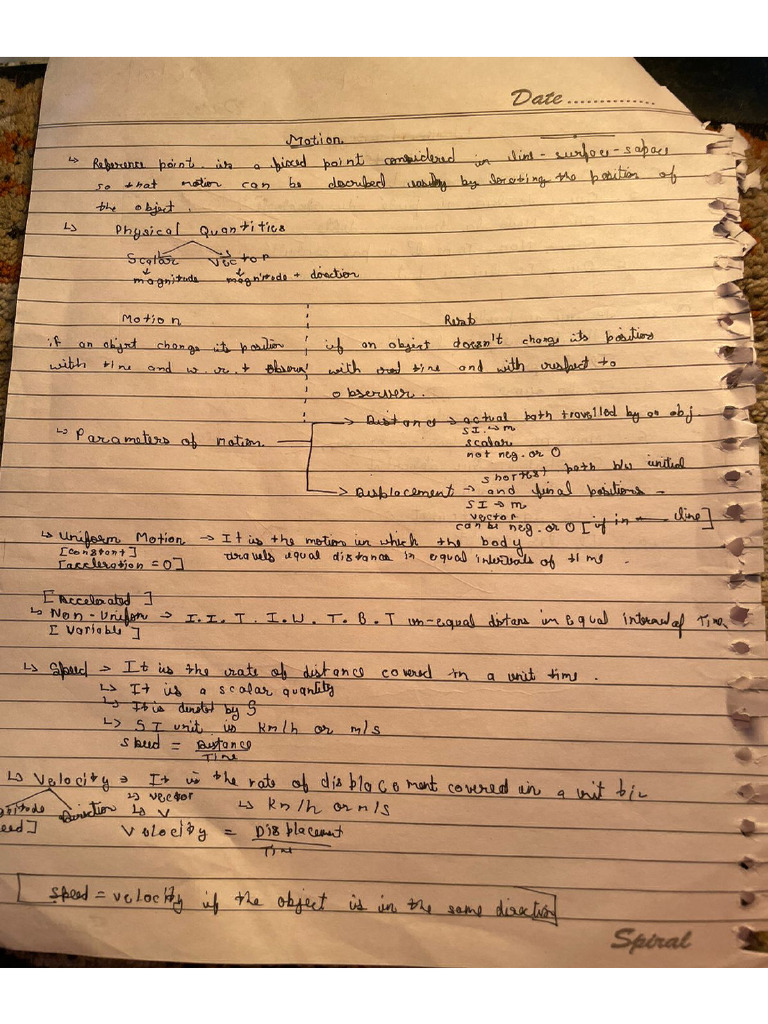 Date..............
Motion
↳ Reference point is a fixed point considered in line - surface - sapace
so that motion can be described easily by locating the position of
the object.
↳ Physical Quantities
Scalar Vector
magnitude magnitude + direction
Motion Rest
if an object change its position if an object doesn't change its position
with time and w.r.t observer with time and with respect to
observer.
→ Distance → actual path travelled by an obj.
SI → m
scalar
not neg. or 0
↳ Parameters of motion
shortest path b/w initial
→ Displacement → and final positions -
SI → m
vector
can be neg. or 0 [if in line]
↳ Uniform Motion → It is the motion in which the body
[constant] travels equal distance in equal intervals of time.
[acceleration = 0]
[Accelerated]
↳ Non-Uniform → I. I. T. I. W. T. B. T un-equal distans in Equal interval of Time.
[Variable]
↳ Speed → It is the rate of distance covered in a unit time.
↳ It is a scalar quantity
↳ It is denoted by S
↳ SI unit is Km/h or m/s
speed = Distance
Time
↳ Velocity → It is the rate of displacement covered in a unit
Direction ↳ vector
↳ V ↳ Km/h or m/s
Velocity = Displacement
Time
speed = velocity if the object is in the same direction
Spiral